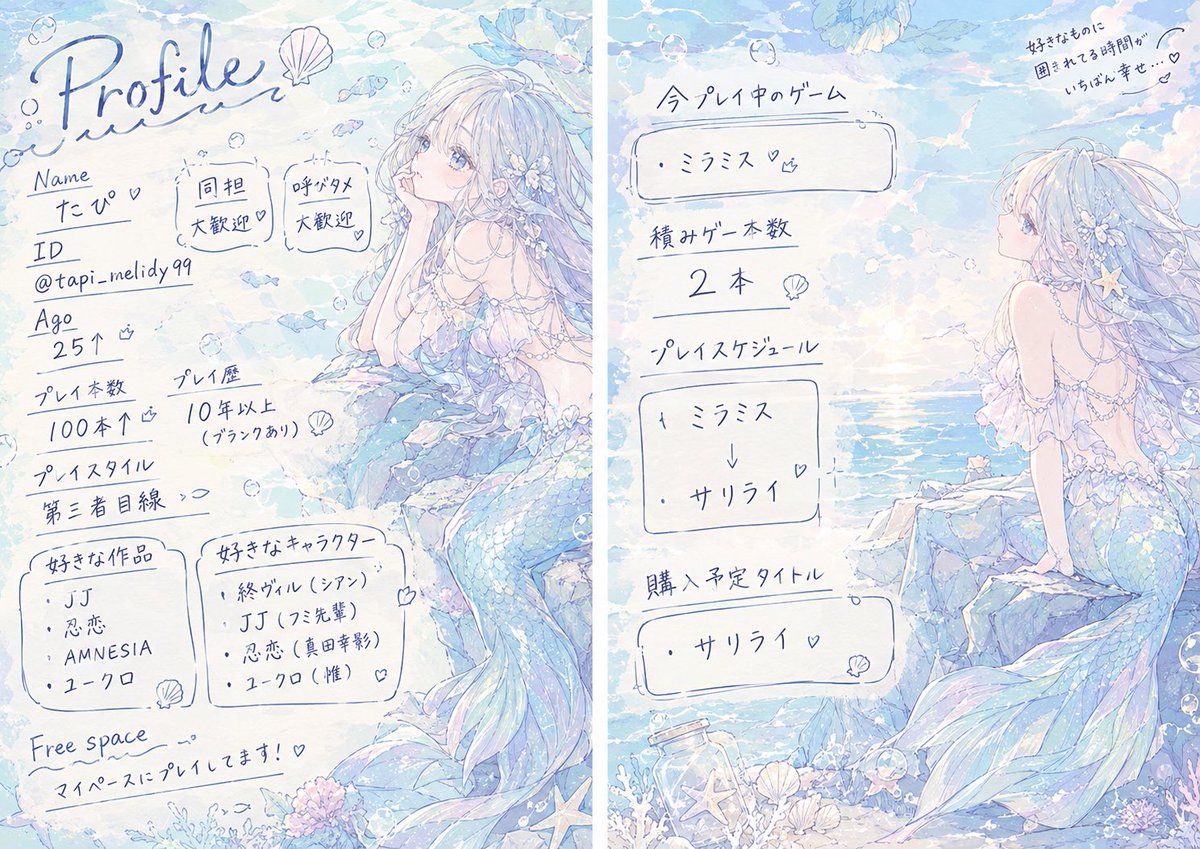 Profile
Name
たぴ
同担
大歓迎
呼びタメ
大歓迎
ID
@tapi_melidy99
Ago
25↑
プレイ本数
100本↑
プレイ歴
10年以上
(ブランクあり)
プレイスタイル
第三者目線
好きな作品
・JJ
・忍恋
・AMNESIA
・ユークロ
好きなキャラクター
・終ヴィル(シアン)
・JJ(フミ先輩)
・忍恋(真田幸影)
・ユークロ(惟)
Free space
マイペースにプレイしてます!
好きなものに
囲まれてる時間が
いちばん幸せ…
今プレイ中のゲーム
・ミラミス
積みゲー本数
2本
プレイスケジュール
・ミラミス
↓
・サリライ
購入予定タイトル
・サリライ